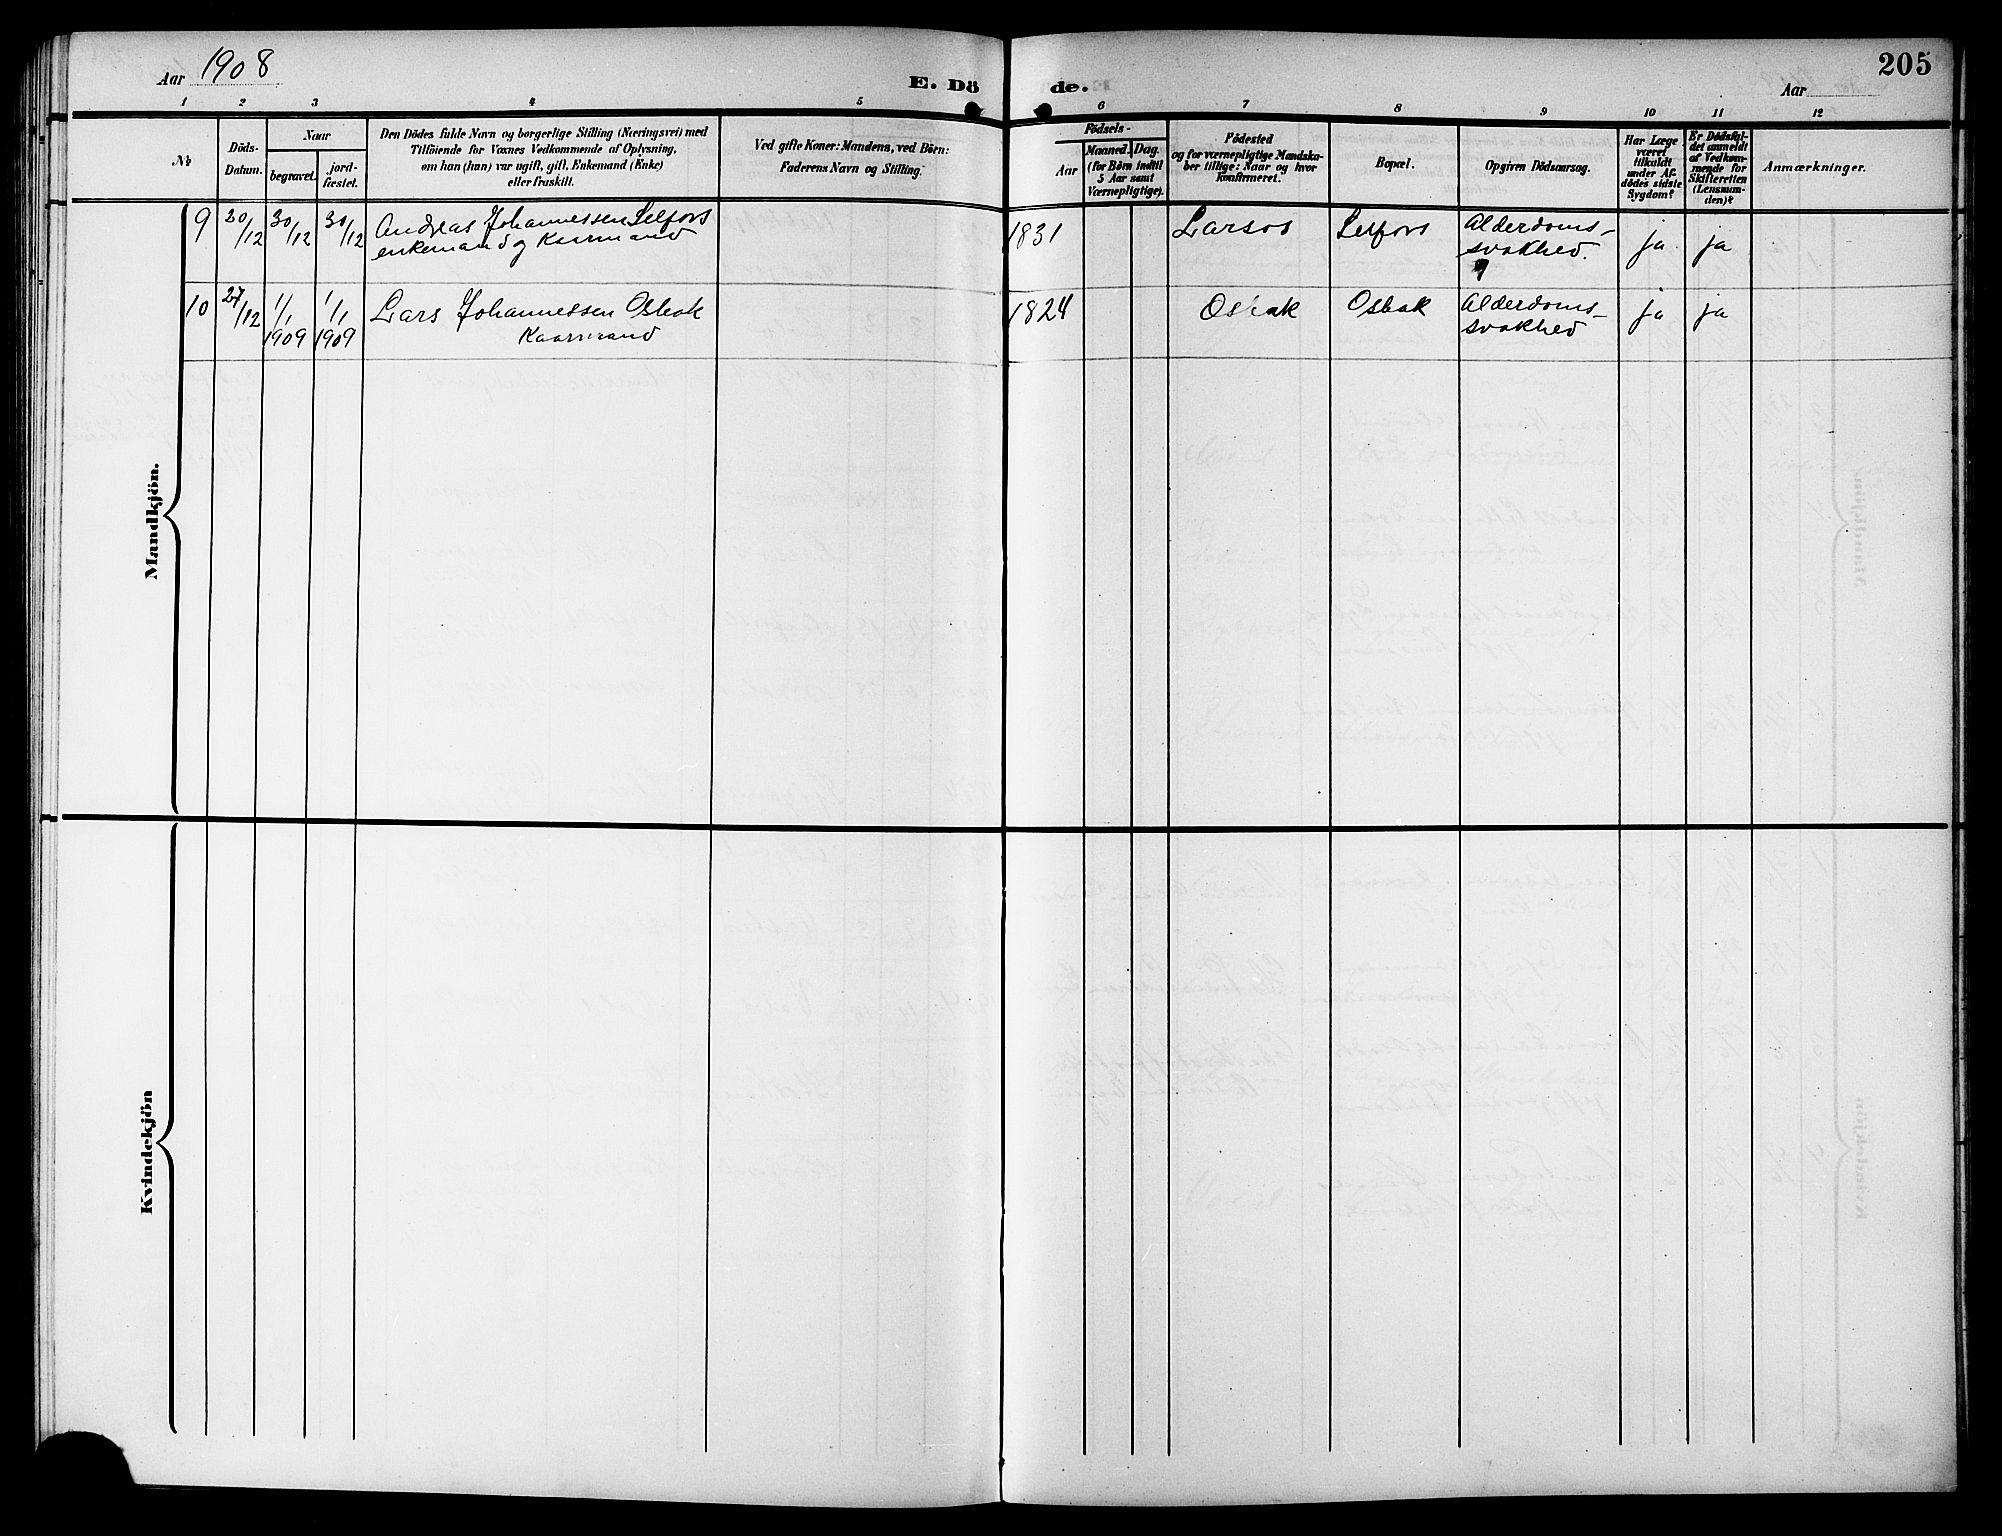 Aar 1908
E. Dö de.
Aar
205
1 2 3 4 5 6 7 8 9 10 11 12
№
Döds-
Datum.
Naar
begravet.
jord-
fæstet.
Den Dödes fulde Navn og borgerlige Stilling (Næringsvei) med
Tilföiende for Voxnes Vedkommende af Oplysning,
om han (hun) var ugift, gift, Enkemand (Enke)
eller fraskilt.
Ved gifte Koner: Mandens, ved Börn:
Faderens Navn og Stilling.
Födsels-
Aar
Maaned. Dag.
(for Börn indtil
5 Aar samt
Værnepligtige).
Födested
og for værnepligtige Mandska-
ber tillige: Naar og hvor
konfirmeret.
Bopæl.
Opgiven Dödsaarsag.
Har Læge
været
tilkaldt
under Af-
dödes sidste
Sygdom?
Er Dödsfal-
det anmeldt
af Vedkom-
mende for
Skifteretten
(Lensman-
den)?
Anmærkninger.
Mandkjön.
9 20/12 30/12 30/12 Andreas Johannessen Selfors 1831 Larsos Selfors Alderdoms- ja ja
enkemand og Kaarmand svakhed.
10 27/12 1/1 1909 1/1 1909 Lars Johannessen Osbak 1824 Osbak Osbak Alderdoms- ja ja
Kaarmand svakhed
Kvindekjön